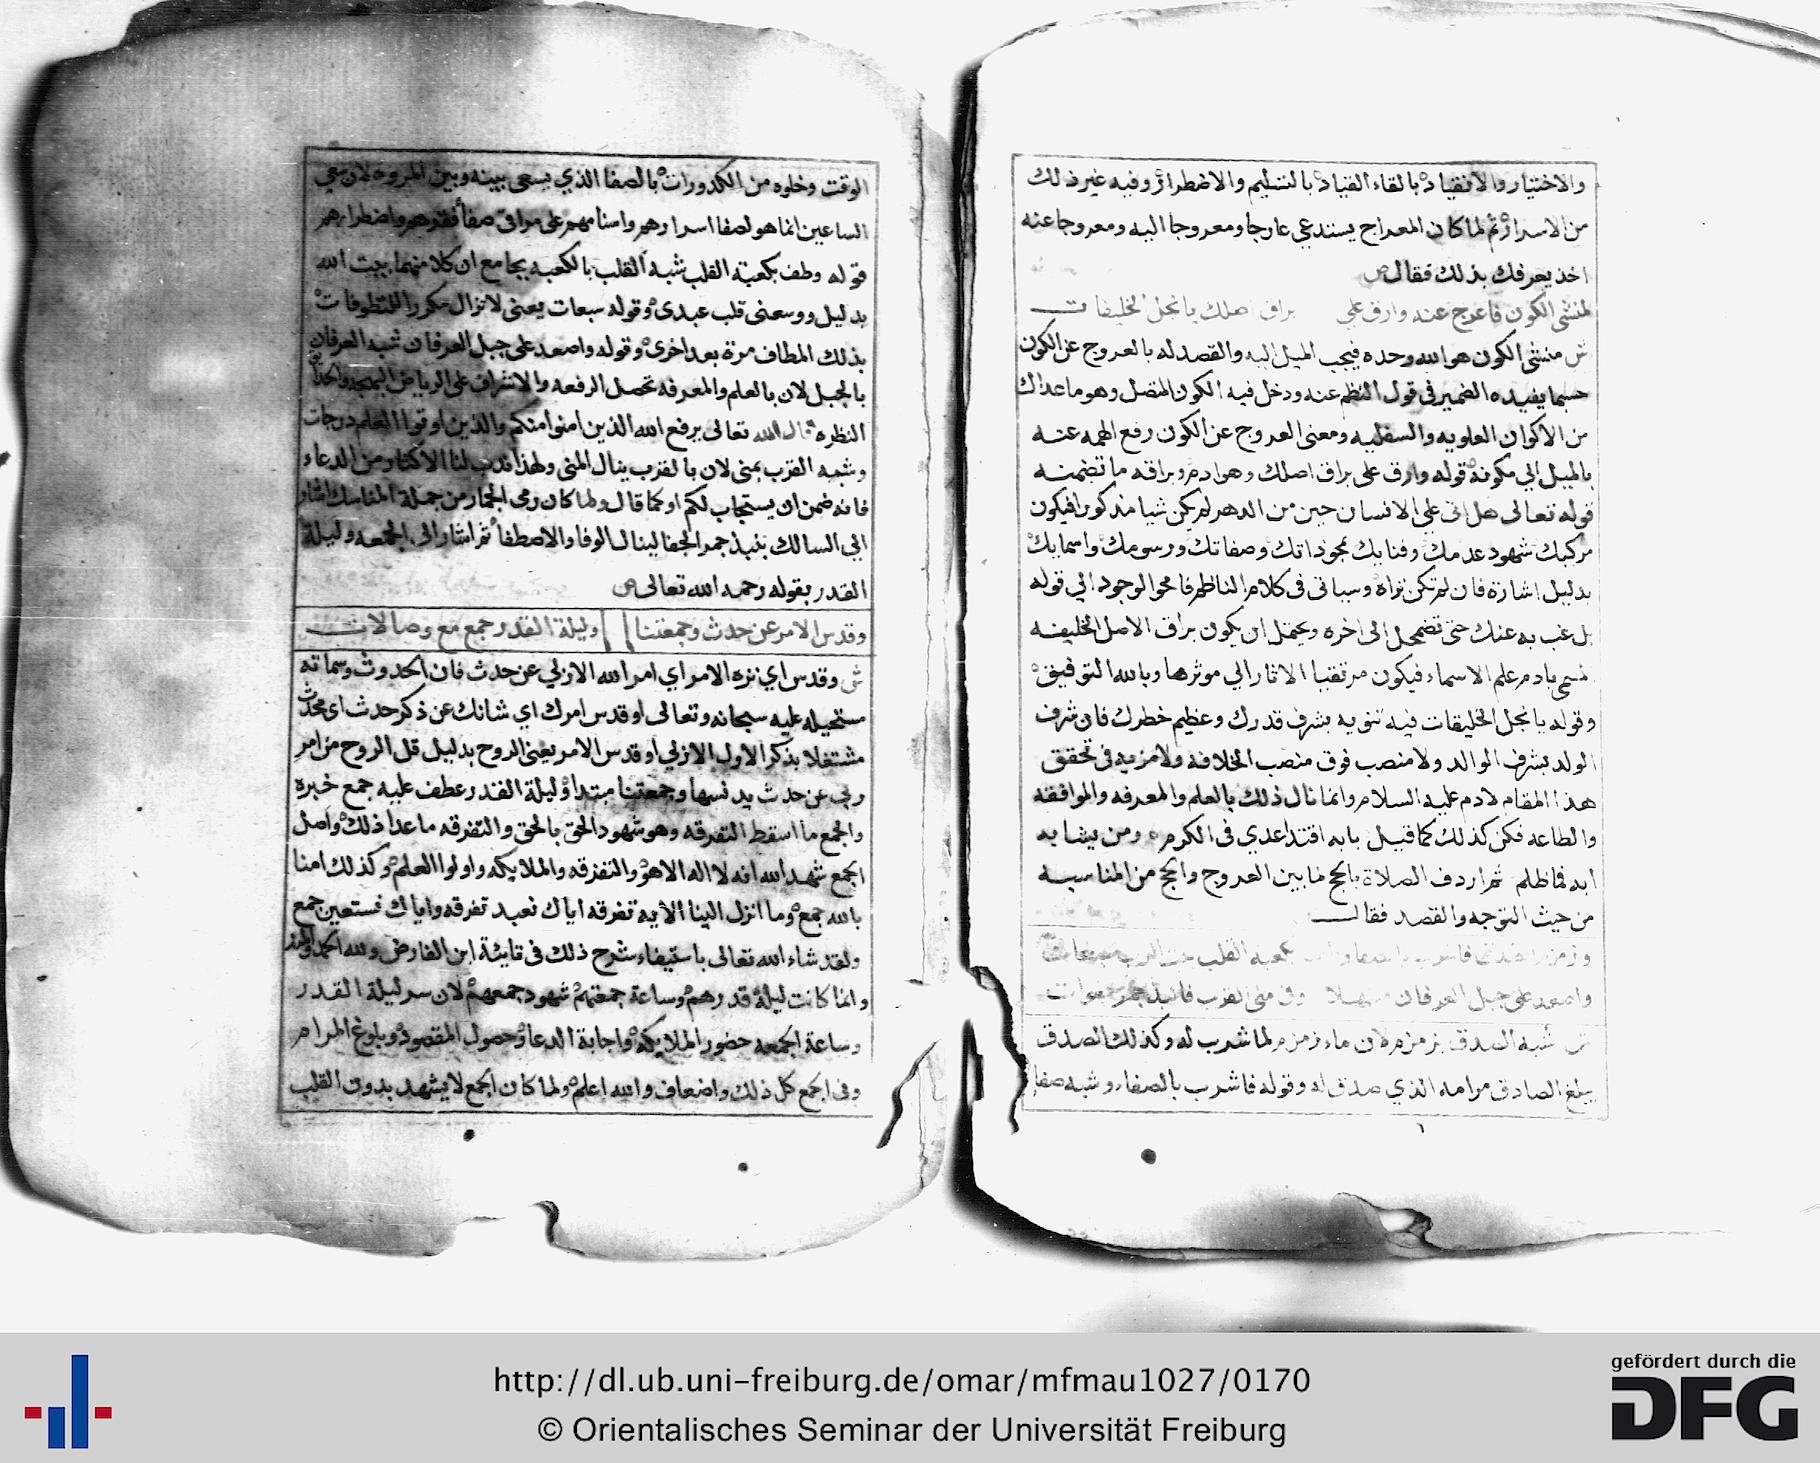 والاختيار والانقياد بالقاء القياد بالتسليم والاضطرار وفيه غير ذلك
من الاسرار ثم لما كان المعراج يستدعي عارجا ومعروجا اليه ومعروجا عنه
اخذ يعرفك بذلك فقال ص
لمنشي الكون فاعرج عنه وارق علي براق اصلك يا نجل الخليفات
ش منشي الكون هو الله وحده فيجب الميل اليه والقصد له بالعروج عن الكون
حسبما يفيده الضمير في قول النظم عنه ودخل فيه الكون المتصل وهو ما عداك
من الاكوان العلويه والسفليه ومعني العروج عن الكون رفع الهمه عنه
بالميل الي مكونه قوله وارق علي براق اصلك وهو ادم وبراقه ما تضمنه
قوله تعالي هل اتي علي الانسان حين من الدهر لم يكن شيا مذكورا فيكون
مركبك شهود عدمك وفنايك بمحو ذاتك وصفاتك ورسومك واسمايك
بدليل اشارة فان لم تكن تراه وسياتي في كلام الناظم فامحو الوجود الي قوله
بل غب به عنك حتي تضمحل الي اخره ويحتمل ان يكون براق الاصل الخليفه
ادم علم الاسماء فيكون مرتقيا الاثار الي موثرها وبالله التوفيق
وقوله يا نجل الخليفات فيه تنويه بشرف قدرك وعظيم خطرك فان شرف
الولد بشرف الوالد ولا منصب فوق منصب الخلافه ولا مزيه في تحقق
هذا المقام لادم عليه السلام وانما نال ذلك بالعلم والمعرفه والموافقه
والطاعه فكن كذلك كما قيل بابه اقتدا عدي في الكرم ومن يشابه
ابه فما ظلم ثم اردف الصلاة بالحج لما بين العروج والحج من المناسبه
من حيث التوجه والقصد فقال
وزمزم فاشرب بكعبة القلب
واصعد علي جبل العرفان وفي مني القرب فانبذ جمر
ش شبه الصدق بزمزم لان ماء زمزم لما شرب له وكذلك الصدق
يبلغ الصادق مرامه الذي صدق له وقوله فاشرب بالصفاء وشبه صفا
الوقت وخلوه من الكدورات بالصفا الذي يسعي بينه وبين المروه لان سعي
الساعين انما هو لصفا اسرارهم واسنا مهم علي مراقي صفا فقرهم واضطرارهم
قوله وطف بكعبة القلب شبه القلب بالكعبه بجامع ان كلا منهما بيت الله
بدليل ووسعني قلب عبدي وقوله سبعات يعني لا تزال مكررا للتطوفات
بذلك المطاف مرة بعد اخري وقوله واصعد علي جبل العرفان شبه العرفان
بالجبل لان بالعلم والمعرفه تحصل الرفعه والاشراف علي الرياض البهجه
النظره قال الله تعالي يرفع الله الذين امنوا منكم والذين اوتوا العلم درجات
وشبه القرب بمني لان بالقرب ينال المني ولهذا ندب لنا الاكثار من الدعاء
فانه ضمن ان يستجاب لكم او كما قال ولما كان رمي الجمار من جملة المناسك اشار
الي السالك بنبذ جمر الجفا لينال الوفا والاصطفا ثم اشار الي الجمعه وليلة
القدر بقوله رحمه الله تعالي ص
وقدس الامر عن حدث وجمعتنا وليلة القدر جمع مع وصالات
ش وقدس اي نزه الامر اي امر الله الازلي عن حدث فان الحدوث وسماته
مستحيله عليه سبحانه وتعالي او قدس امرك اي شانك عن ذكر حدث اي محدث
مشتغلا بذكر الاول الازلي او قدس الامر يعني الروح بدليل قل الروح من امر
ربي عن حدث يدنسها وجمعتنا مبتدا وليلة القدر عطف عليه جمع خبره
والجمع ما اسقط التفرقه وهو شهود الحق بالحق والتفرقه ما عدا ذلك واصل
الجمع شهد الله انه لا اله الا هو والتفرقه والملايكه واولوا العلم وكذلك امنا
بالله جمع وما انزل الينا الايه تفرقه اياك نعبد تفرقه واياك نستعين جمع
ولقد شاء الله تعالي باستيفاء شرح ذلك في تايئة ابن الفارض ولله الحمد
وانما كانت ليلة قدرهم وساعة جمعتهم شهود جمعهم لان سر ليلة القدر
وساعة الجمعه حضور الملايكه واجابة الدعا وحصول المقصود وبلوغ المرام
وفي الجمع كل ذلك واضعاف والله اعلم ولما كان الجمع لا يشهد بدون القلب
http://dl.ub.uni-freiburg.de/omar/mfmau1027/0170
© Orientalisches Seminar der Universität Freiburg
gefördert durch die
DFG